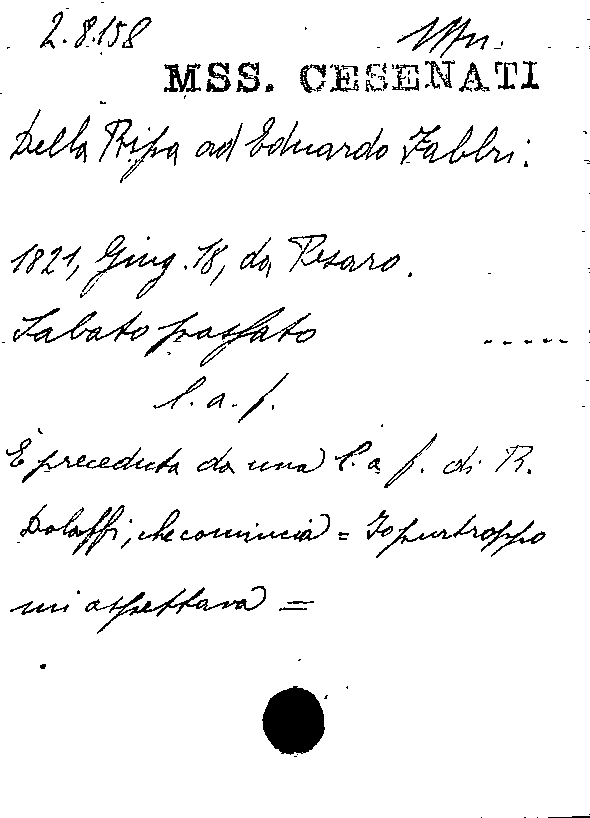 2.8.158
MSS. CESENATI
Della Ripa ad Eduardo Fabbri.
1821, Giug. 18, da Pesaro.
Sabato passato .....
l. a. f.
È preceduta da una l. a f. di R.
Dolaffi, che comincia = Io purtroppo
mi aspettava =